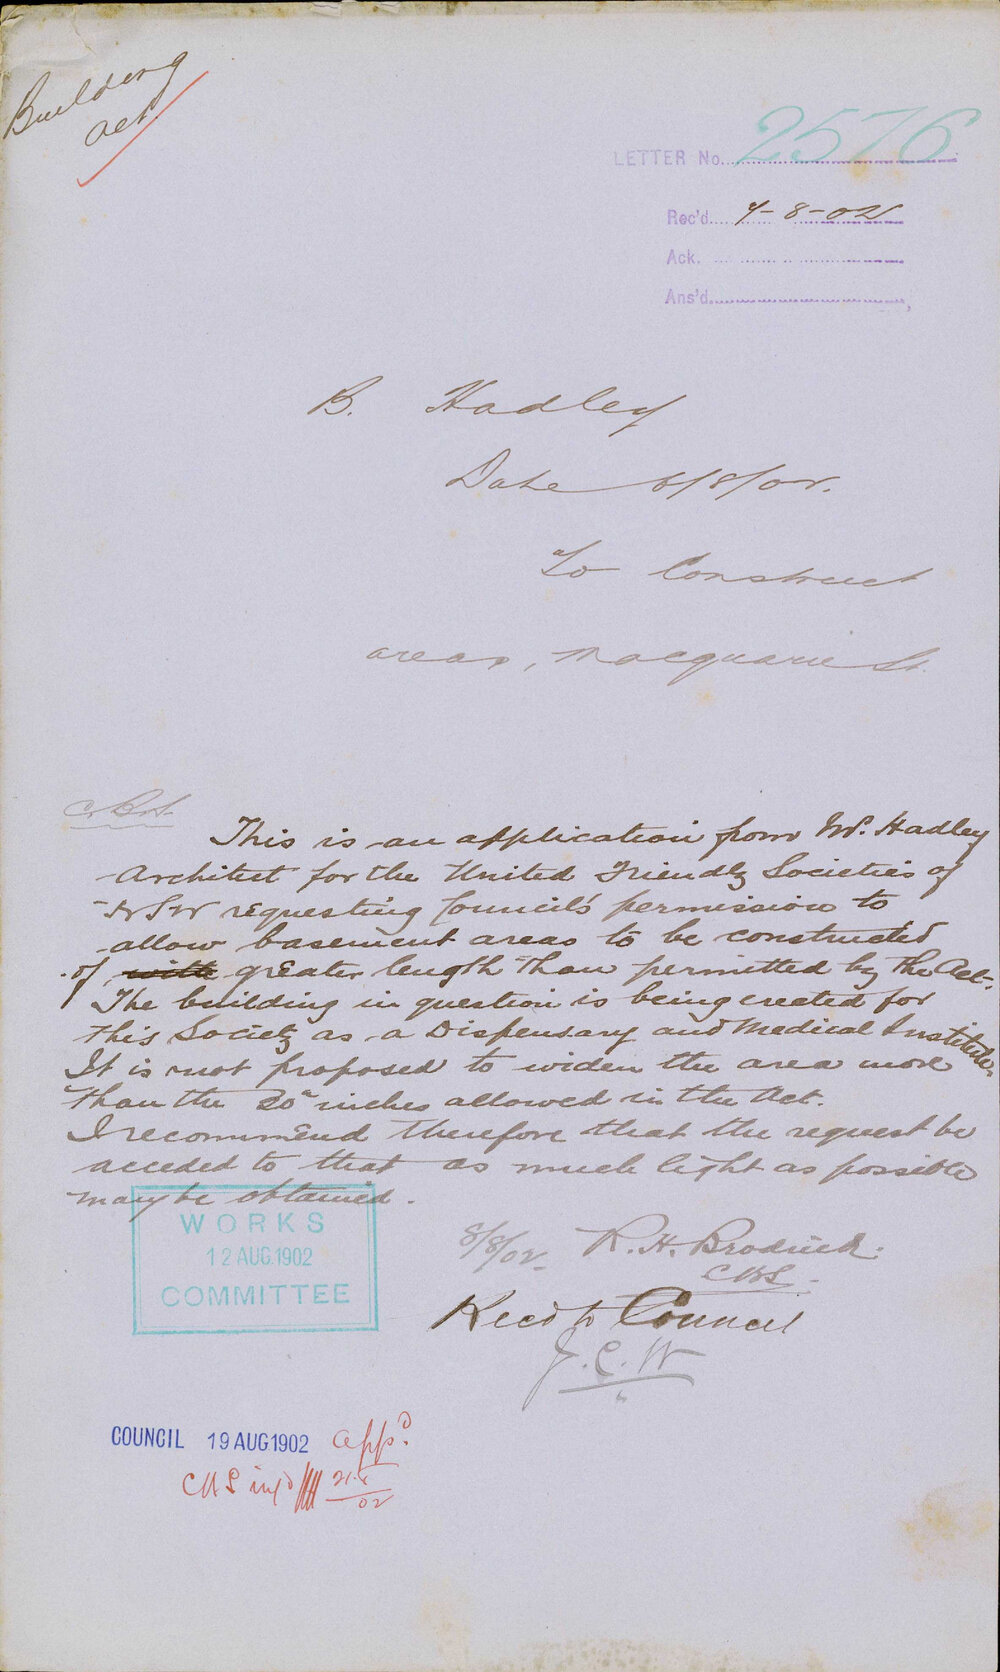 Building
Act
LETTER No. 2576
Rec'd. 7-8-02
Ack.
Ans'd.
B. Hadley
Date 6/8/02.
To Construct
areas, Macquarie St.
This is an application from Mr. Hadley
Architect for the United Friendly Societies of
NSW requesting Council's permission to
allow basement areas to be constructed
of with greater length than permitted by the Act.
The building in question is being erected for
this Society as a Dispensary and Medical Institute.
It is not proposed to widen the area more
than the 30 inches allowed in the Act.
I recommend therefore that the request be
acceded to that as much light as possible
may be obtained.
WORKS
12 AUG. 1902
COMMITTEE
8/8/02. R. H. Brodrick.
CBS.
Recd to Council
J. C. W
COUNCIL 19 AUG 1902 appd.
CBS infd 21.8
02